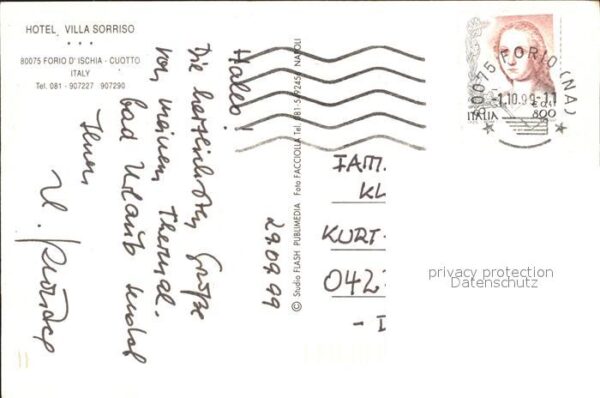 HOTEL VILLA SORRISO
* * *
80075 FORIO D' ISCHIA - CUOTTO
ITALY
Tel. 081 - 907227 907290
Hallo!
Die herzlichsten Grüße
von meinem Thermal-
bad Urlaub sendet
Ihnen
29.09.99
© Studio FLASH PUBLIMEDIA Foto FACCIOLLA Tel. 081-5492451 NAPOLI
80075 FORIO (NA)
-1.10.99-11
ITALIA
800
FAM.
KL
KURT-
042
privacy protection
Datenschutz